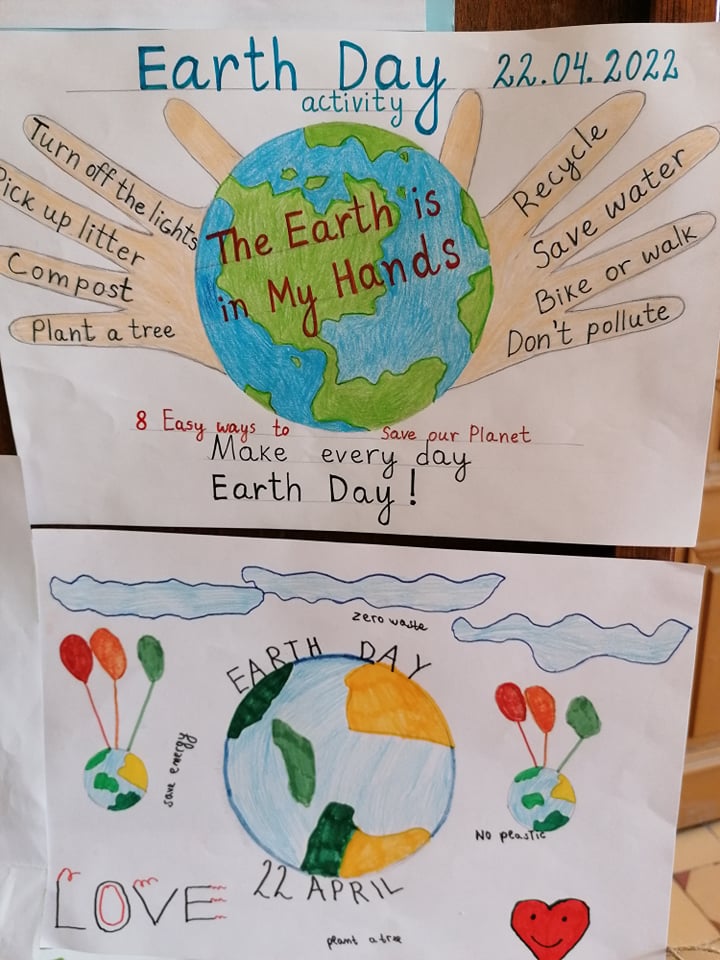 Earth Day 22.04.2022
activity
Turn off the lights
Pick up litter
Compost
Plant a tree
The Earth is
in My Hands
Recycle
Save water
Bike or walk
Don't pollute
8 Easy ways to save our Planet
Make every day
Earth Day!
zero waste
EARTH DAY
save energy
No plastic
22 APRIL
LOVE
plant a tree